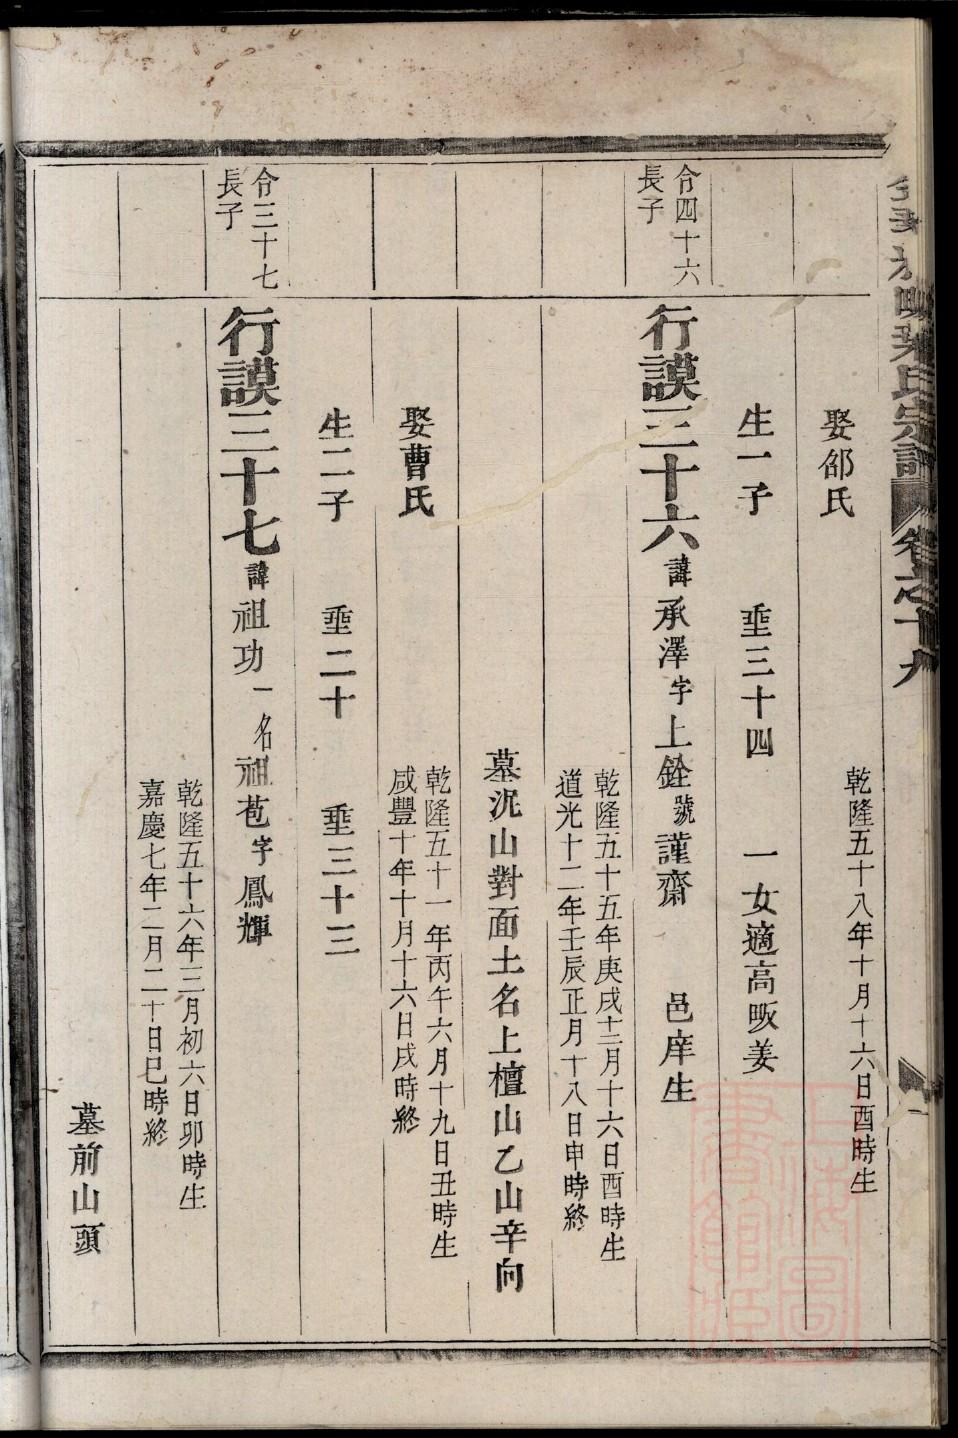 氏宗譜 卷之十九
娶邵氏
乾隆五十八年十月十六日酉時生
生一子 垂三十四 一女適高畈姜
令四十六
長子
行謨三十六 諱承澤字上銓號謹齋 邑庠生
乾隆五十五年庚戌十二月十六日酉時生
道光十二年壬辰正月十八日申時終
墓沉山對面土名上檀山乙山辛向
娶曹氏
乾隆五十一年丙午六月十九日丑時生
咸豐十年十月十六日戌時終
生二子 垂二十 垂三十三
令三十七
長子
行謨三十七 諱祖功一名祖苞字鳳輝
乾隆五十六年三月初六日卯時生
嘉慶七年二月二十日巳時終
墓前山頭
上海圖書館藏